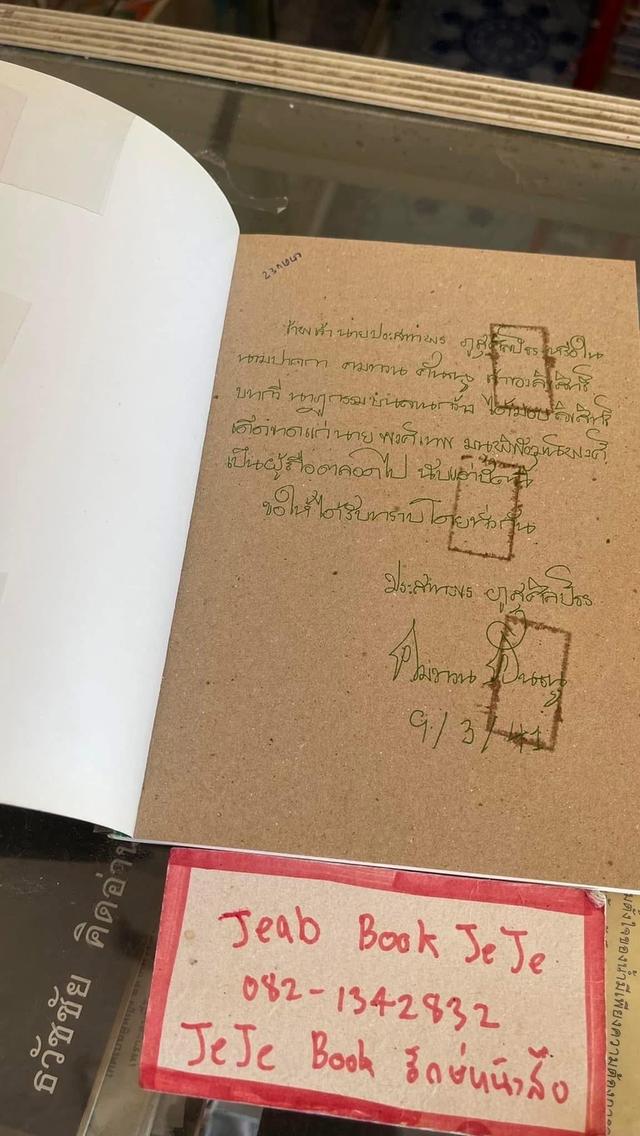 ข้าพเจ้า นายประสาทพร ภูสุศิลป์ธร หรือใน
นามปากกา คมทวน คันธนู
บทกวี นาฏกรรมบนลานกว้าง ได้มอบลิขสิทธิ์
แก่ นาย พงศ์เทพ
เป็นผู้ถือตลอดไป นับแต่บัดนี้
ขอให้ได้รับทราบโดยทั่วกัน
ประสาทพร ภูสุศิลป์ธร
คมทวน คันธนู
9/3/41
Jeab Book JeJe
082-1342832
JeJe Book รักษ์หนังสือ
ธวัชชัย คิดอ่าน